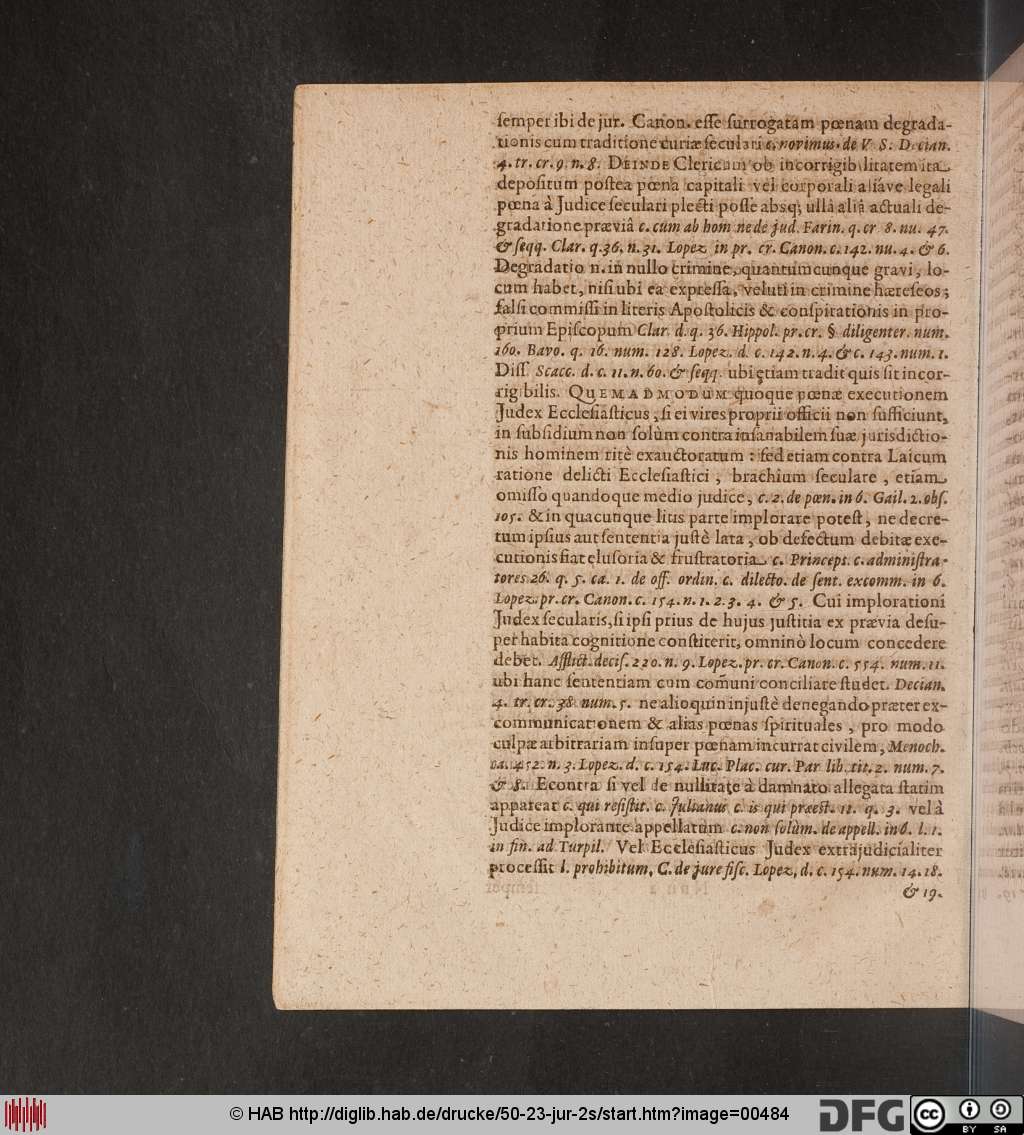 ſemper ibi de jur. Canon. eſſe ſurrogatam pœnam degrada-
tionis cum traditione curiæ ſeculari c. novimus. de V. S. Decian.
4. tr. cr. 9. n. 8. DEINDE Clericum ob incorrigibilitatem ita
depoſitum poſtea pœna capitali vel corporali aliáve legali
pœna à Judice ſeculari plecti poſſe absq; ullâ aliâ actuali de-
gradatione præviâ c. cùm ab homine de jud. Farin. q. cr. 8. nu. 47.
& ſeqq. Clar. q. 36. n. 31. Lopez in pr. cr. Canon. c. 142. nu. 4. & 6.
Degradatio n. in nullo crimine, quantumcunque gravi, lo-
cum habet, niſi ubi ea expreſſa, veluti in crimine hæreſeos;
falſi commiſſi in literis Apoſtolicis & conſpirationis in pro-
prium Epiſcopum Clar. d. q. 36. Hippol. pr. cr. § diligenter. num.
160. Bavo. q. 16. num. 128. Lopez. d. c. 142. n. 4. & c. 143. num. 1.
Diſſ. Scacc. d. c. 11. n. 60. & ſeqq. ubi etiam tradit quis ſit incor-
rigibilis. QUEMADMODUM quoque pœnæ executionem
Judex Eccleſiaſticus, ſi ei vires proprii officii non ſufficiunt,
in ſubſidium non ſolùm contra inſanabilem ſuæ jurisdictio-
nis hominem ritè exauctoratum: ſed etiam contra Laicum
ratione delicti Eccleſiaſtici, brachium ſeculare, etiam
omiſſo quandoque medio judice, c. 2. de pœn. in 6. Gail. 2. obſ.
105. & in quacunque litis parte implorare poteſt, ne decre-
tum ipſius aut ſententia juſtè lata, ob defectum debitæ exe-
cutionis fiat eluſoria & fruſtratoria c. Princeps. c. adminiſtra-
tores 26. q. 5. ca. 1. de off. ordin. c. dilecto. de ſent. excomm. in 6.
Lopez. pr. cr. Canon. c. 154. n. 1. 2. 3. 4. & 5. Cui implorationi
Judex ſecularis, ſi ipſi prius de hujus juſtitia ex prævia deſu-
per habita cognitione conſtiterit, omninò locum concedere
debet. Afflict. deciſ. 220. n. 9. Lopez. pr. cr. Canon. c. 554. num. 11.
ubi hanc ſententiam cum com̃uni conciliare ſtudet. Decian.
4. tr. cr. 38. num. 5. ne alioquin injuſtè denegando præter ex-
communicationem & alias pœnas ſpirituales, pro modo
culpæ arbitrariam inſuper pœnam incurrat civilem, Menoch.
ca. 452. n. 3. Lopez. d. c. 154. Luc. Plac. cur. Par lib. tit. 2. num. 7.
& 8. Econtra ſi vel de nullitate à damnato allegata ſtatim
appareat c. qui reſiſtit. c. Julianus c. is qui præeſt. 11. q. 3. vel à
Judice implorante appellatum c. non ſolùm. de appell. in 6. l. 1.
in fin. ad Turpil. Vel Eccleſiaſticus Judex extrajudicialiter
proceſſit l. prohibitum, C. de jure fiſc. Lopez, d. c. 154. num. 14. 18.
& 19.
© HAB http://diglib.hab.de/drucke/50-23-jur-2s/start.htm?image=00484
DFG
cc
BY SA